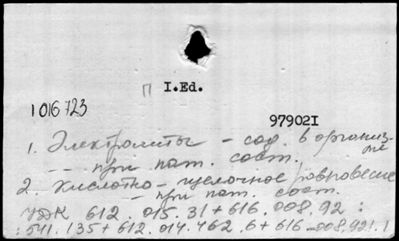 П I.Ed.
1016723
97902I
1. Электролиты – сод. в организ-
ме
-- при пат. сост.
2. Кислотно-щелочное равновесие
– при пат. сост.
УДК 612.015.31+616.008.92:
:541.135+612.014.462.6+616-008.921.1